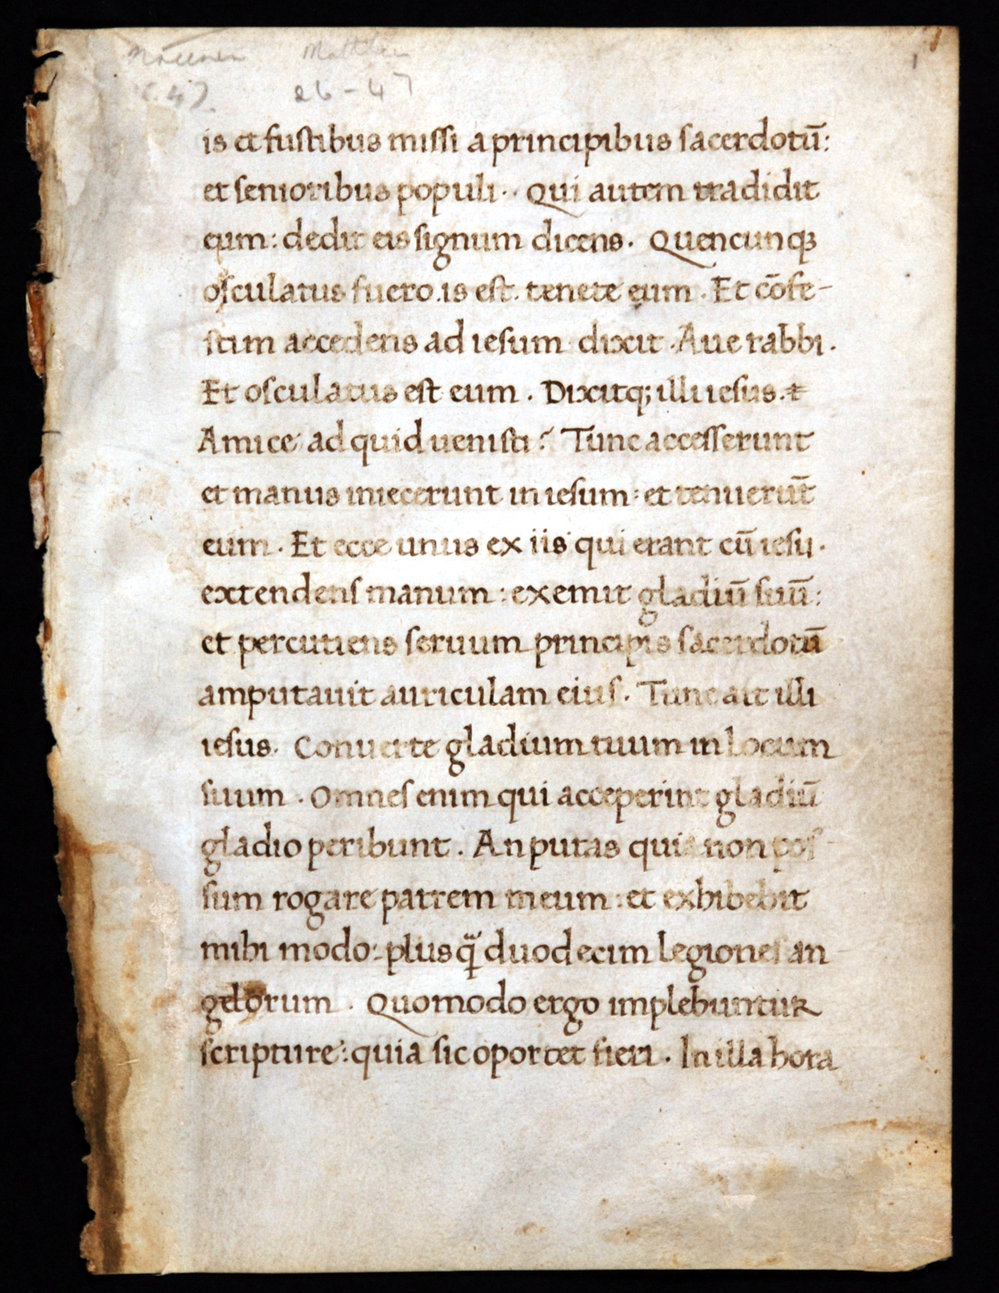 Matthew
c. 47.
26-47
1
is et fustibus missi a principibus sacerdotū:
et senioribus populi. Qui autem tradidit
eum: dedit eis signum dicens. Quencunq
osculatus fuero. is est. tenete eum. Et cōfe-
stim accedens ad iesum dixit. Aue rabbi.
Et osculatus est eum. Dixitq; illi iesus.
Amice ad quid uenisti? Tunc accesserunt
et manus iniecerunt in iesum: et tenuerūt
eum. Et ecce unus ex iis qui erant cū iesu.
extendens manum: exemit gladiū suū:
et percutiens seruum principis sacerdotū
amputauit auriculam eius. Tunc ait illi
iesus. Conuerte gladium tuum in locum
suum. Omnes enim qui acceperint gladiū
gladio peribunt. An putas quia non pos
sum rogare patrem meum: et exhibebit
mihi modo: plusq̄ duodecim legiones an
gelorum. Quomodo ergo implebuntur
scripture: quia sic oportet fieri. In illa hora